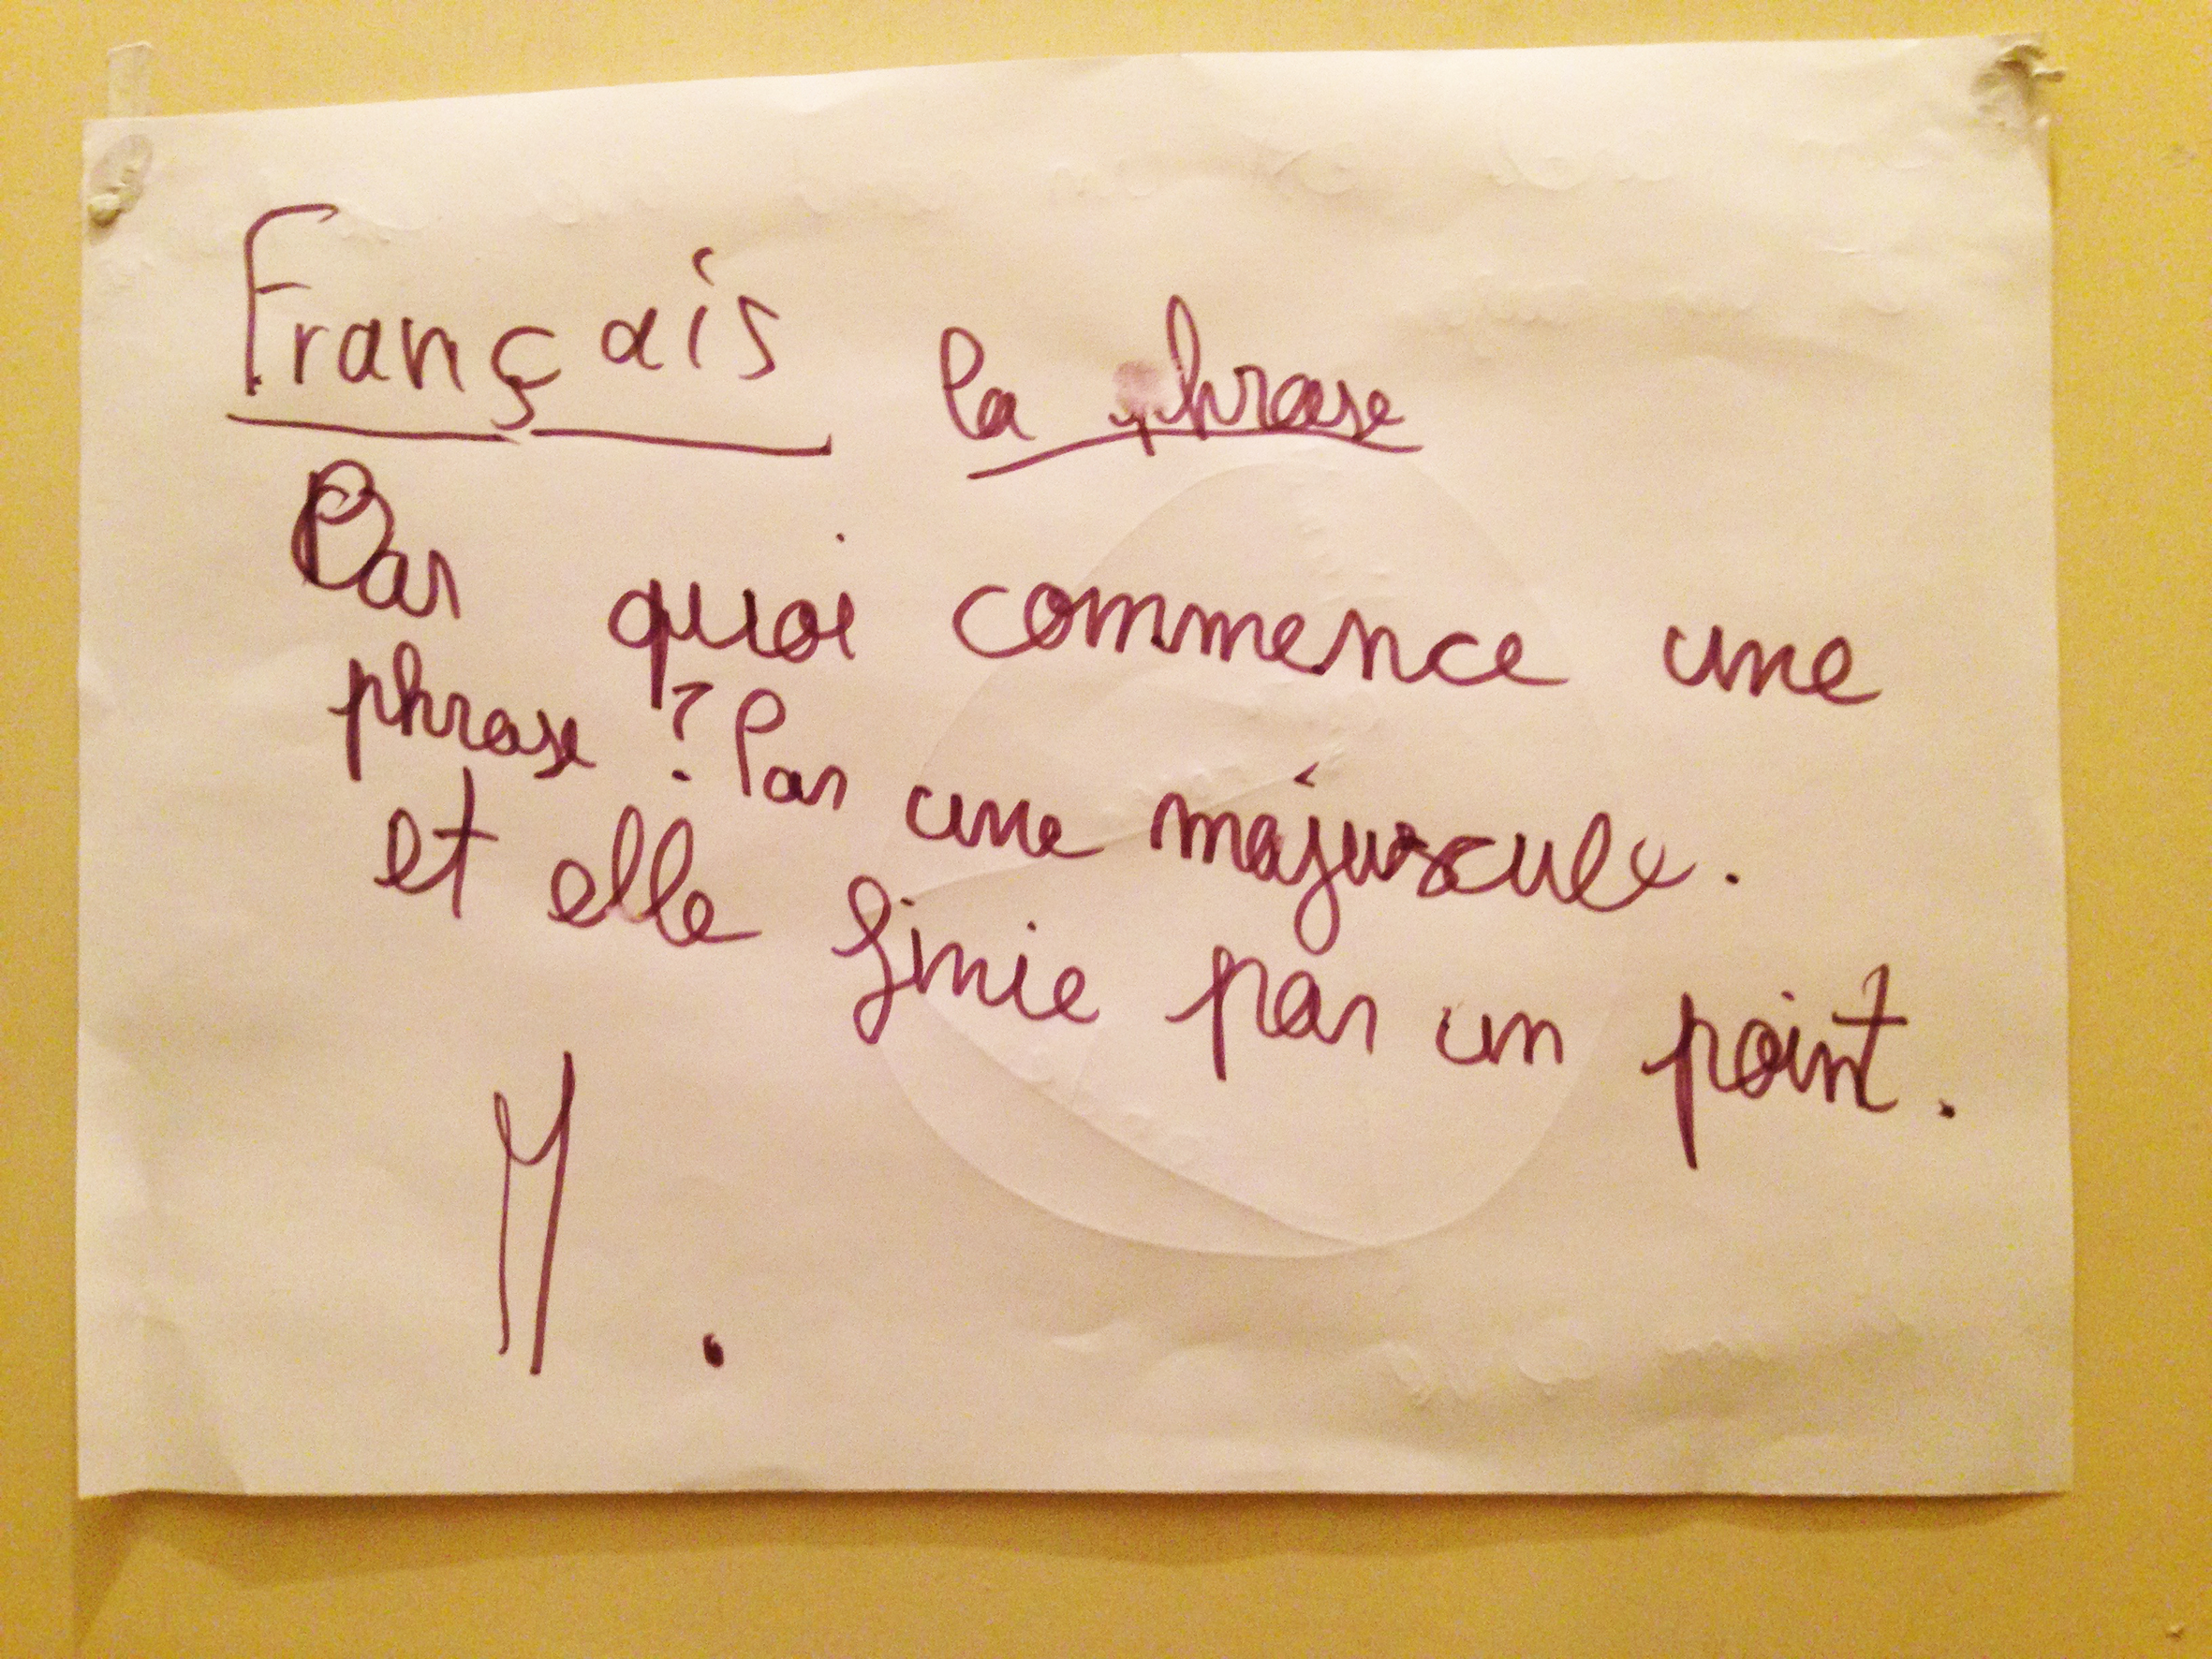 Français la phrase
Par quoi commence une
phrase ? Par une majuscule.
et elle finie par un point.
M .